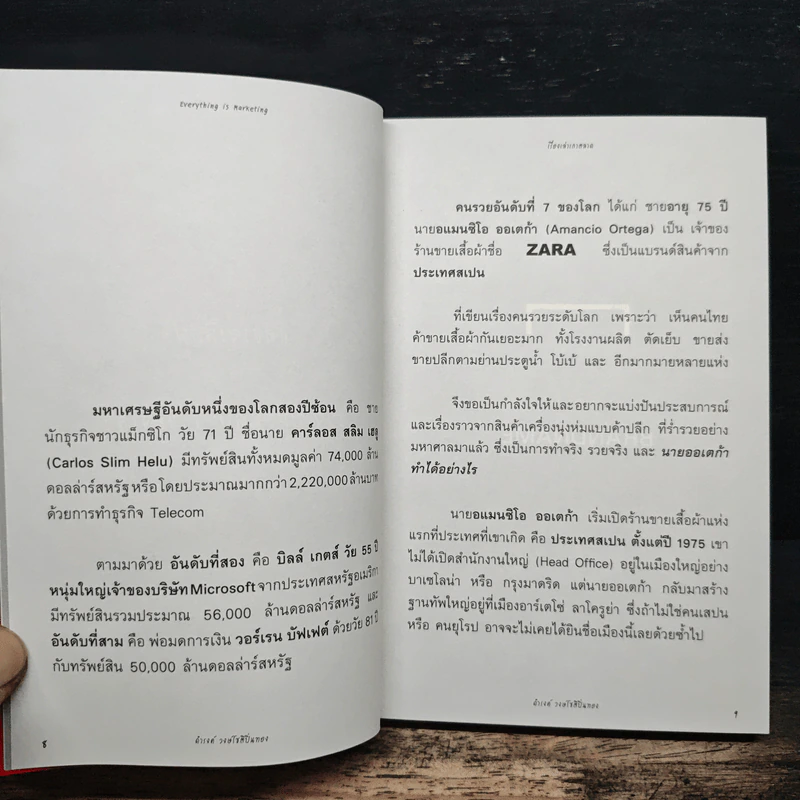 Everything is Marketing
มหาเศรษฐีอันดับหนึ่งของโลกสองปีซ้อน คือ ชาย
นักธุรกิจชาวแม็กซิโก วัย 71 ปี ชื่อนาย คาร์ลอส สลิม เฮลู
(Carlos Slim Helu) มีทรัพย์สินทั้งหมดมูลค่า 74,000 ล้าน
ดอลล่าร์สหรัฐ หรือโดยประมาณมากกว่า 2,220,000 ล้านบาท
ด้วยการทำธุรกิจ Telecom
ตามมาด้วย อันดับที่สอง คือ บิลล์ เกตส์ วัย 55 ปี
หนุ่มใหญ่เจ้าของบริษัท Microsoft จากประเทศสหรัฐอเมริกา
มีทรัพย์สินรวมประมาณ 56,000 ล้านดอลล่าร์สหรัฐ และ
อันดับที่สาม คือ พ่อมดการเงิน วอร์เรน บัฟเฟต์ ด้วยวัย 81 ปี
กับทรัพย์สิน 50,000 ล้านดอลล่าร์สหรัฐ
8
ดำรงค์ วงษ์โชติปิ่นทอง
เรื่องเล่าการตลาด
คนรวยอันดับที่ 7 ของโลก ได้แก่ ชายอายุ 75 ปี
นายอแมนซิโอ ออเตก้า (Amancio Ortega) เป็น เจ้าของ
ร้านขายเสื้อผ้าชื่อ ZARA ซึ่งเป็นแบรนด์สินค้าจาก
ประเทศสเปน
ที่เขียนเรื่องคนรวยระดับโลก เพราะว่า เห็นคนไทย
ค้าขายเสื้อผ้ากันเยอะมาก ทั้งโรงงานผลิต ตัดเย็บ ขายส่ง
ขายปลีกตามย่านประตูน้ำ โบ้เบ้ และ อีกมากมายหลายแห่ง
จึงขอเป็นกำลังใจให้ และอยากจะแบ่งปันประสบการณ์
และเรื่องราวจากสินค้าเครื่องนุ่งห่มแบบค้าปลีก ที่ร่ำรวยอย่าง
มหาศาลมาแล้ว ซึ่งเป็นการทำจริง รวยจริง และ นายออเตก้า
ทำได้อย่างไร
นายอแมนซิโอ ออเตก้า เริ่มเปิดร้านขายเสื้อผ้าแห่ง
แรกที่ประเทศที่เขาเกิด คือ ประเทศสเปน ตั้งแต่ปี 1975 เขา
ไม่ได้เปิดสำนักงานใหญ่ (Head Office) อยู่ในเมืองใหญ่อย่าง
บาเซโลน่า หรือ กรุงมาดริด แต่นายออเตก้า กลับมาสร้าง
ฐานทัพใหญ่อยู่ที่เมืองอาร์เตโซ่ ลาโครูย่า ซึ่งถ้าไม่ใช่คนเสปน
หรือ คนยุโรป อาจจะไม่เคยได้ยินชื่อเมืองนี้เลยด้วยซ้ำไป
ดำรงค์ วงษ์โชติปิ่นทอง
9